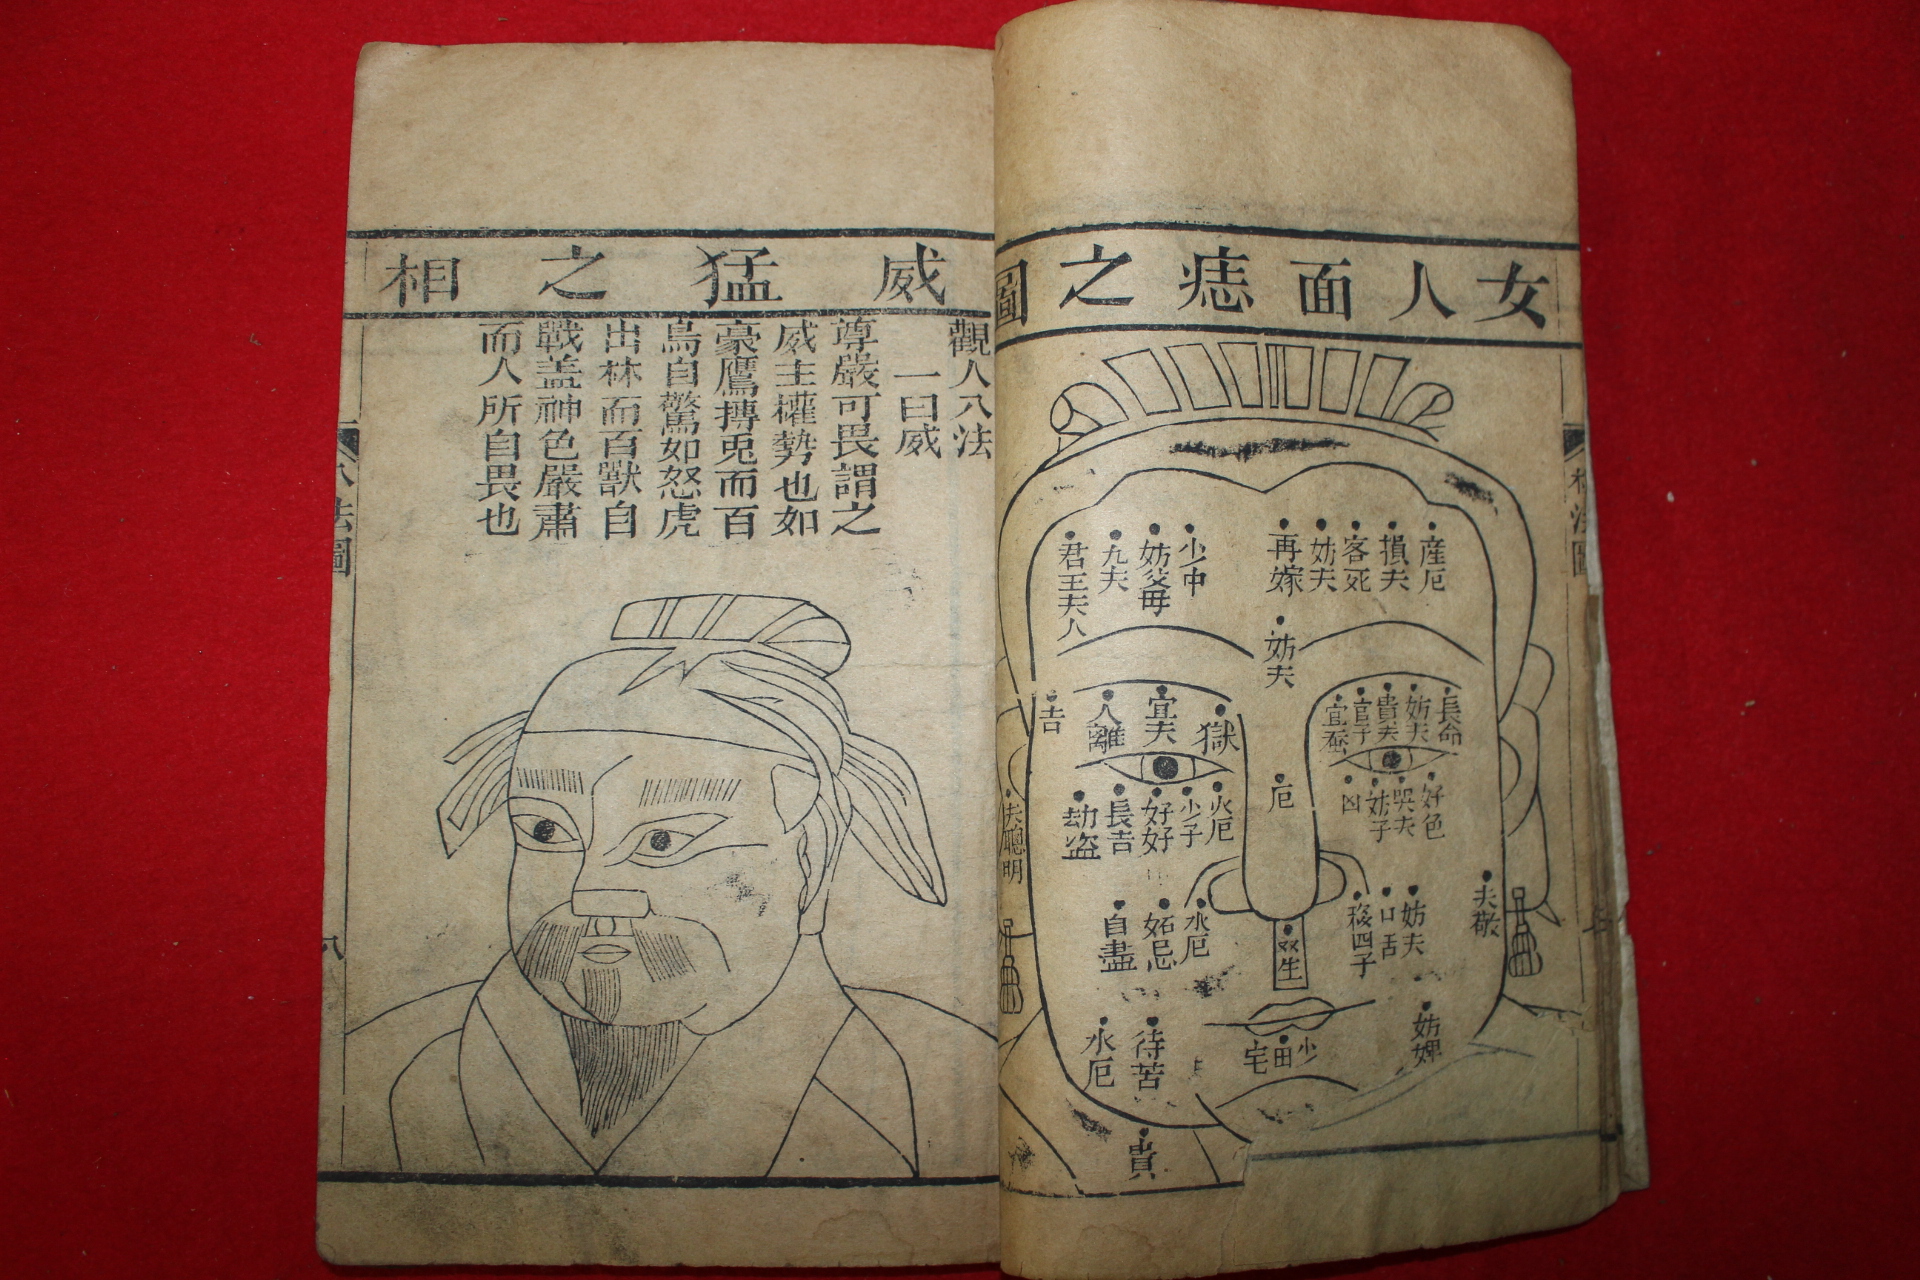 女人面痣之圖
産厄
損夫
客死
妨夫
再嫁
少中
妨父母
九夫
君王夫人
妨夫
長命
妨夫
貴夫
宜子
宜蚕
獄
宜夫
人離
吉
好色
哭夫
妨子
凶
厄
火厄
少子
好好
長吉
劫盗
夫聰明
夫敬
妨夫
口舌
移四子
双生
水厄
妬忌
自盡
妨婢
少田宅
待苦
水厄
貴
威猛之相
觀人八法
一曰威
尊嚴可畏謂之
威主權勢也如
豪鷹搏兎而百
鳥自驚如怒虎
出林而百獸自
戰盖神色嚴肅
而人所自畏也
八法圖
八